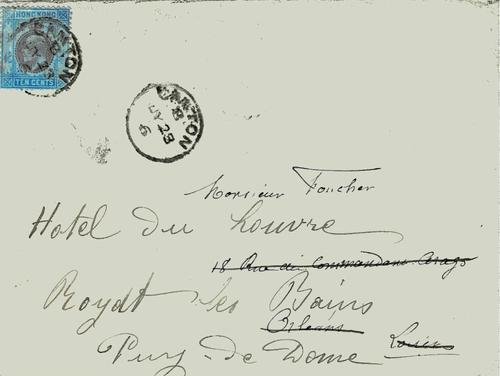 HONGKONG
TEN CENTS
CANTON
B
CANTON
B
JY 28
6
Monsieur Foucher
Hotel du Louvre
18 Rue du Commandant Arago
Royat les Bains
Orleans
Puy-de-Dome
Loiret